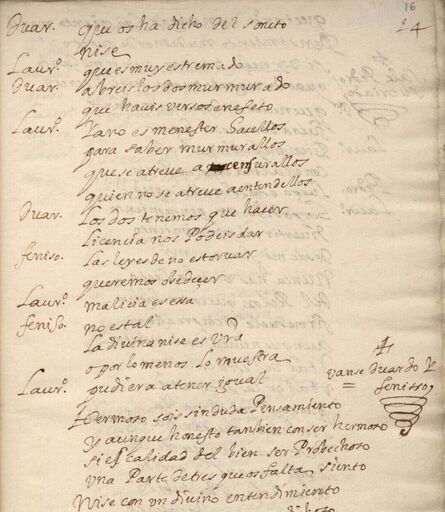 16
24
Duar. que os ha dicho del soneto
nise
Laurº. que es muy estremado
duar. abreis los dos murmurado
que haceis versos en efeto
Laurº. ya no es menester hacellos
para saber murmurallos
que se atreve a censurallos
quien no se atreve a entendellos
Duar. Los dos tenemos que hacer
Licencia nos Podeis dar
feniso. Las leyes de no estorvar
queremos obedecer
Laurº. malicia es essa
feniso. no es tal
La divina nise es vrā
o por lo menos lo muestra
Laurº. pudiera a tener igual
vanse duardo y
feniso
Hermoso sois sin duda Pensamiento
y aunque honesto tanbien con ser hermoso
si es calidad del bien ser Probechoso
una Parte de tres que os falta siento
Nise con un divino entendimiento